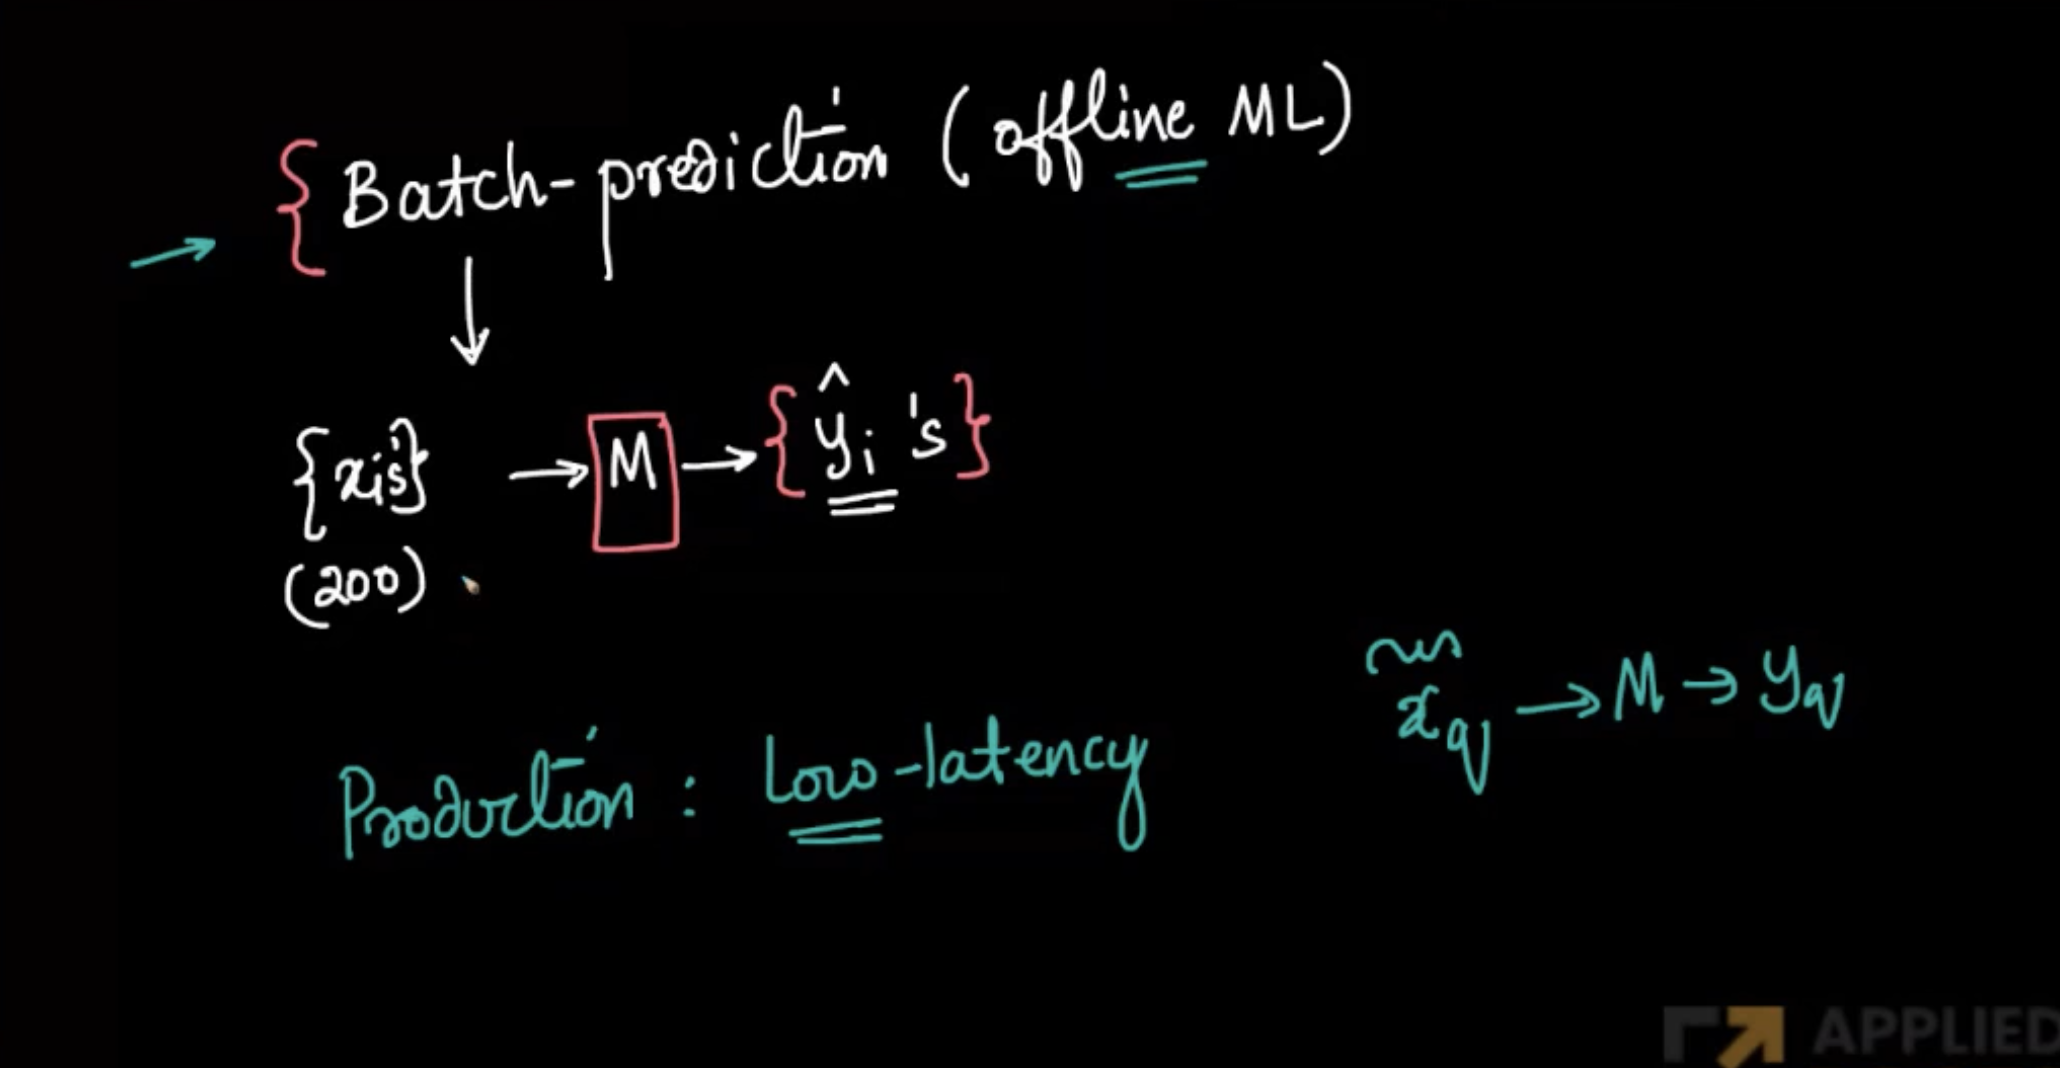 { Batch-prediction (offline ML)
→
↓
{xi's} → M → {ŷi 's}
(200)
xq → M → yq
Production : Low-latency
APPLIED